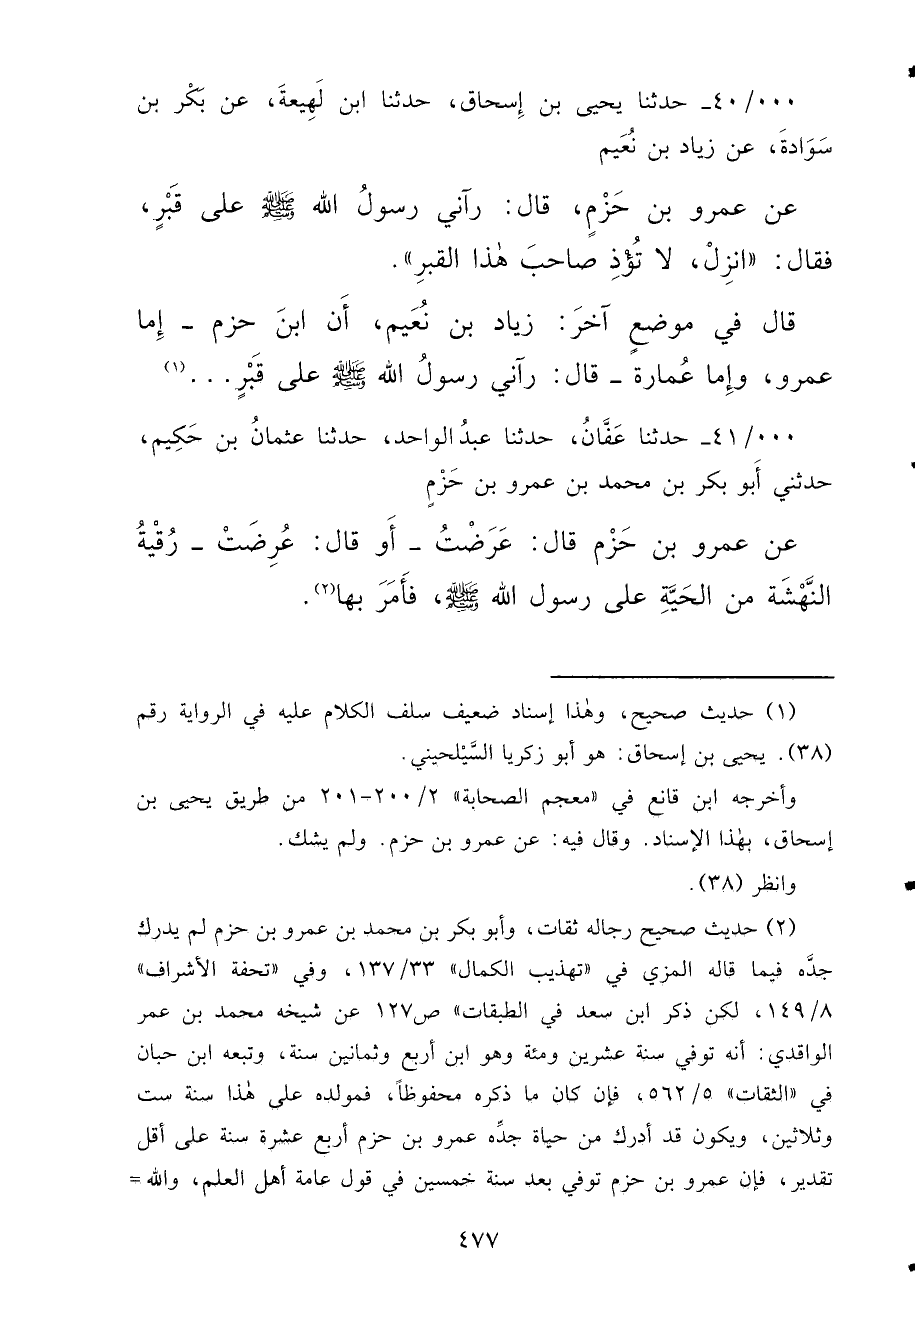 ٤٠/٠٠٠ـ حدثنا يحيى بن إِسحاق، حدثنا ابن لَهِيعةَ، عن بَكْر بن
سَوَادةَ، عن زياد بن نُعَيم
عن عمرو بن حَزْمٍ، قال: رآني رسولُ الله ﷺ على قَبْرٍ،
فقال: «انزِلْ، لا تُؤْذِ صاحبَ هٰذا القبرِ».
قال في موضعٍ آخرَ: زياد بن نُعَيم، أَن ابنَ حزم ـ إِما
عمرو، وإِما عُمارة ـ قال: رآني رسولُ الله ﷺ على قَبْرٍ...(١)
٤١/٠٠٠ـ حدثنا عَفَّانُ، حدثنا عبدُ الواحد، حدثنا عثمانُ بن حَكِيم،
حدثني أَبو بكر بن محمد بن عمرو بن حَزْمٍ
عن عمرو بن حَزْم قال: عَرَضْتُ ـ أَو قال: عُرِضَتْ ـ رُقْيةُ
النَّهْشَة من الحَيَّةِ على رسول الله ﷺ، فأَمَرَ بها(٢).
(١) حديث صحيح، وهٰذا إسناد ضعيف سلف الكلام عليه في الرواية رقم
(٣٨). يحيى بن إسحاق: هو أبو زكريا السَّيْلحيني.
وأخرجه ابن قانع في «معجم الصحابة» ٢٠٠/٢-٢٠١ من طريق يحيى بن
إسحاق، بهٰذا الإسناد. وقال فيه: عن عمرو بن حزم. ولم يشك.
وانظر (٣٨).
(٢) حديث صحيح رجاله ثقات، وأبو بكر بن محمد بن عمرو بن حزم لم يدرك
جدَّه فيما قاله المزي في «تهذيب الكمال» ١٣٧/٣٣، وفي «تحفة الأشراف»
١٤٩/٨، لكن ذكر ابن سعد في الطبقات» ص١٢٧ عن شيخه محمد بن عمر
الواقدي: أنه توفي سنة عشرين ومئة وهو ابن أربع وثمانين سنة، وتبعه ابن حبان
في «الثقات» ٥٦٢/٥، فإن كان ما ذكره محفوظاً، فمولده على هٰذا سنة ست
وثلاثين، ويكون قد أدرك من حياة جدِّه عمرو بن حزم أربع عشرة سنة على أقل
تقدير، فإن عمرو بن حزم توفي بعد سنة خمسين في قول عامة أهل العلم، والله =
٤٧٧